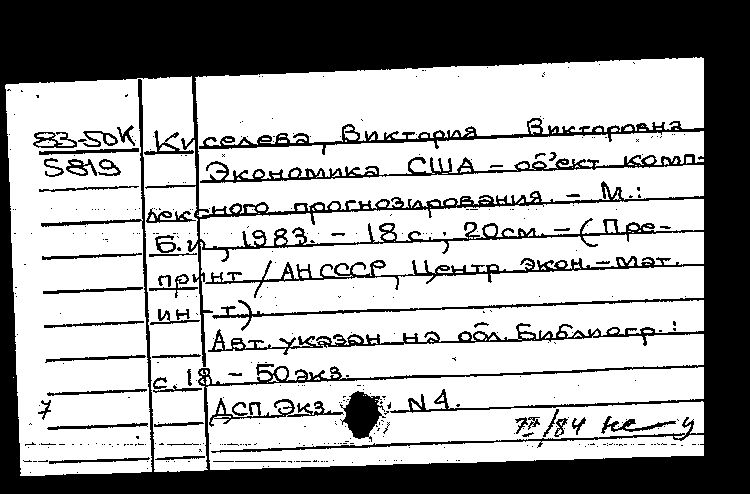 83-50К Киселева, Виктория Викторовна
5819 Экономика США – об'ект комп-
лексного прогнозирования. – М.:
Б.и., 1983. – 18 с.; 20см. – (Пре-
принт / АН СССР, Центр. экон.-мат.
ин-т).
Авт. указан на обл. Библиогр.:
с. 18. – 50 экз.
7 ДСП. Экз. N 4.
/84